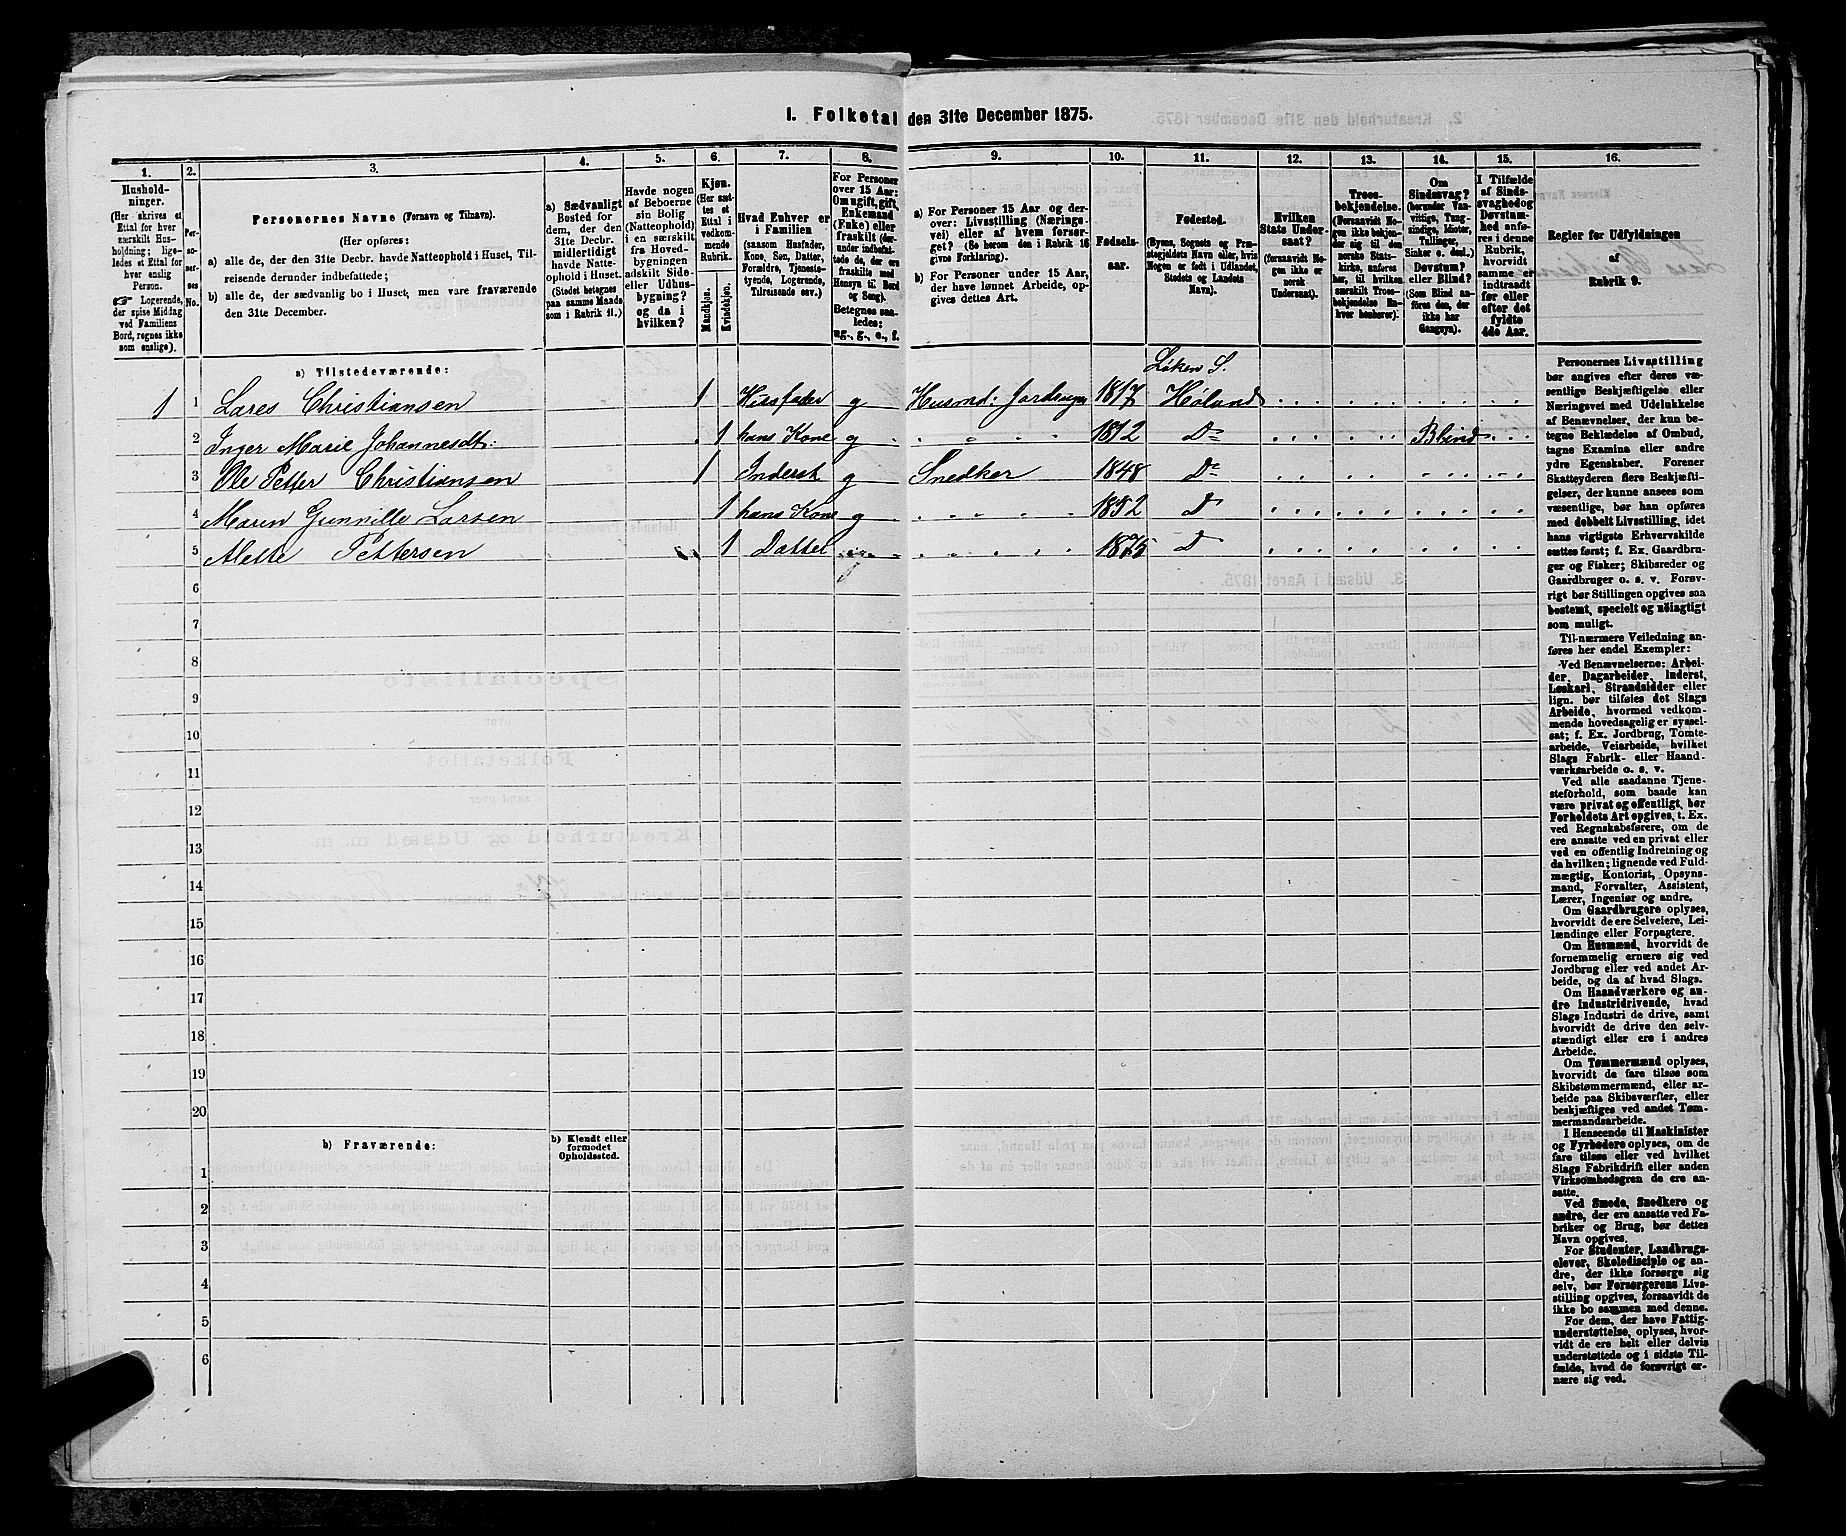 1. Folketal den 31te December 1875.
1. 2. 3. 4. 5. 6. 7. 8. 9. 10. 11. 12. 13. 14. 15. 16.
Hushold-
ninger.
(Her skrives et
Ettal for hver
særskilt Hus-
holdning; lige-
ledes et Ettal for
hver enslig
Person.
☞ Logerende,
der spise Middag
ved Familiens
Bord, regnes ikke
som enslige).
Per-
so-
ner-
nes
No.
Personernes Navne (Fornavn og Tilnavn).
(Her opføres:
a) alle de, der den 31te Decbr. havde Natteophold i Huset, Til-
reisende derunder indbefattede;
b) alle de, der sædvanlig bo i Huset, men vare fraværende
den 31te December.
a) Sædvanligt
Bosted for
dem, der den
31te Decbr.
midlertidigt
havde Natte-
ophold i Huset.
(Stedet betegnes
paa samme Maade
som i Rubrik 11.)
Havde nogen
af Beboerne
sin Bolig
(Natteophold)
i en særskilt
fra Hoved-
bygningen
adskilt Side-
eller Udhus-
bygning?
og da i
hvilken?
Kjøn.
(Her sæt-
tes et
Ettal i
vedkom-
mende
Rubrik.
Mandkjøn.
Kvindekjøn.
Hvad Enhver er
i Familien
(saasom Husfader,
Kone, Søn, Datter,
Forældre, Tjeneste-
tyende, Logerende,
Tilreisende osv.)
For Personer
over 15 Aar:
Om ugift, gift,
Enkemand
(Enke) eller
fraskilt (der-
under indbefat-
tede de, der ere
fraskilte med
Hensyn til Bord
og Seng).
Betegnes saa-
ledes:
ug., g., e., f.
a) For Personer 15 Aar og der-
over: Livsstilling (Nærings-
vei) eller af hvem forsør-
get? (Se herom den i Rubrik 16
givne Forklaring).
b) For Personer under 15 Aar,
der have lønnet Arbeide, op-
gives dettes Art.
Fødsels-
aar.
Fødested.
(Byens, Sognets og Præ-
stegjeldets Navn eller, hvis
Nogen er født i Udlandet,
Stedets og Landets
Navn).
Hvilken
Stats Under-
saat?
(forsaavidt No-
gen ikke er
norsk
Undersaat).
Troes-
bekjendelse.
(Forsaavidt No-
gen ikke bekjen-
der sig til den
norske Stats-
kirke, anføres
her, til hvilken
særskilt Troes-
bekjendelse En-
hver henhører).
Om
Sindssvag?
(herunder Van-
vittige, Tung-
sindige, Idioter,
Tullinger,
Sinker o. desl.)
Døvstum?
eller Blind?
(Som Blind an-
føres den, der
ikke har
Gangsyn).
I Tilfælde
af Sinds-
svaghed og
Døvstum-
hed anfø-
res i denne
Rubrik,
hvorvidt
samme er
indtraadt
før eller
efter det
fyldte
4de Aar.
Regler for Udfyldningen
af
Rubrik 9.
a) Tilstedeværende:
Løken S.
1 1 Lares Christiansen 1 Husfader g Husmd: Jordbruger 1817 Høland
2 Inger Marie Johannesdt: 1 hans Kone g 1812 Do Blind
3 Ole Petter Christiansen 1 Inderst g Snedker 1848 Do
4 Maren Gunnille Larsen 1 hans Kone g 1852 D
5 Mette Pettersen 1 Datter 1875 D
6
7
8
9
10
11
12
13
14
15
16
17
18
19
20
b) Fraværende:
b) Kjendt eller
formodet
Opholdssted.
1
2
3
4
5
6
Personernes Livsstilling
bør angives efter deres væ-
sentlige Beskjæftigelse eller
Næringsvei med Udelukkelse
af Benævnelser, der kun be-
tegne Beklædelse af Ombud,
tagne Examina eller andre
ydre Egenskaber. Forener
Skatteyderen flere Beskjæfti-
gelser, der kunne ansees som
væsentlige, bør han opføres
med dobbelt Livsstilling, idet
hans vigtigste Erhvervskilde
sættes først; f. Ex. Gaardbru-
ger og Fisker; Skibsreder og
Gaardbruger o. s. v. Forøv-
rigt bør Stillingen opgives saa
bestemt, specielt og nøiagtigt
som muligt.
Til nærmere Veiledning an-
føres her endel Exempler:
Ved Benævnelserne: Arbei-
der, Dagarbeider, Inderst,
Løskarl, Strandsidder eller
lign. bør tilføies det Slags
Arbeide, hvormed vedkom-
mende hovedsagelig er syssel-
sat; f. Ex. Jordbrug, Tomte-
arbeide, Veiarbeide, hvilket
Slags Fabrik- eller Haand-
værksarbeide o. s. v.
Ved alle saadanne Tjene-
steforhold, som baade kan
være privat og offentligt, bør
Forholdets Art opgives, t. Ex.
ved Regnskabsførere, om de
ere ansatte ved en privat eller
ved en offentlig Indretning og
da hvilken; lignende ved Fuld-
mægtig, Kontorist, Opsyns-
mand, Forvalter, Assistent,
Lærer, Ingeniør og andre.
Om Gaardbrugere oplyses,
hvorvidt de ere Selveiere, Lei-
lændinge eller Forpagtere.
Om Husmænd, hvorvidt de
fornemmelig ernære sig ved
Jordbrug eller ved andet Ar-
beide, og da af hvad Slags.
Om Haandværkere og an-
dre Industridrivende, hvad
Slags Industri de drive, samt
hvorvidt de drive den selv-
stændigt eller ere i andres
Arbeide.
Om Tømmermænd oplyses,
hvorvidt de fare tilsøs som
Skibstømmermænd, eller ar-
beide paa Skibsværfter, eller
beskjæftiges ved andet Tøm-
mermandsarbeide.
I Henseende til Maskinister
og Fyrbødere oplyses, om de
fare tilsøs eller ved hvilket
Slags Fabrikdrift eller anden
Virksomhedsgren de ere an-
satte.
Ved Smede, Snedkere og
andre, der ere ansatte ved Fa-
briker og Brug, bør dettes
Navn opgives.
For Studenter, Landbrugs-
elever, Skoledisciple og an-
dre, der ikke forsørge sig
selv, bør Forsørgerens Livs-
stilling opgives, forsaavidt de
ikke bo sammen med denne.
For dem, der have Fattig-
understøttelse, oplyses, hvor-
vidt de ere helt eller delvis
understøttede og i sidste Til-
fælde, hvad de forøvrigt er-
nære sig ved.